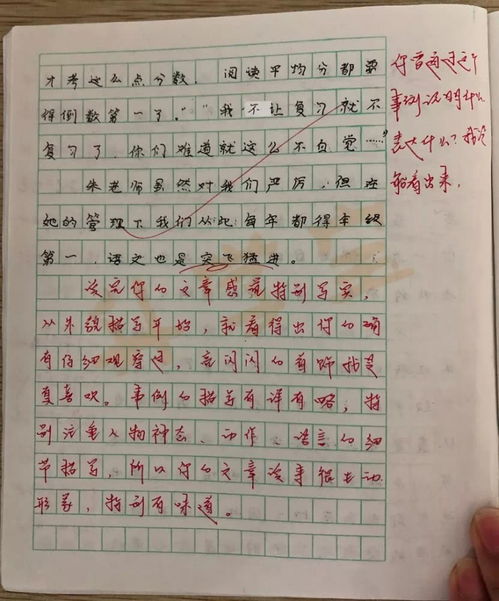 才考这么点分数，阅读平均分都要
得倒数第一了。”“我不让复习就不
复习了，你们难道就这么不自觉……”
朱老师虽然对我们严厉，但在
她的管理下我们从此每年都得年级
第一，语文也是突飞猛进。
读完你的文章感觉特别写实，
从外貌描写开始，就看得出你的确
有仔细观察过，亮闪闪的首饰我是
真喜欢。事例的描写有详有略，特
别注重人物神态、动作、语言的细
节描写，所以你的文章读来很生动
形象，特别有味道。
你曾通过这个
事例说明什么
表达什么？我没
能看出来。